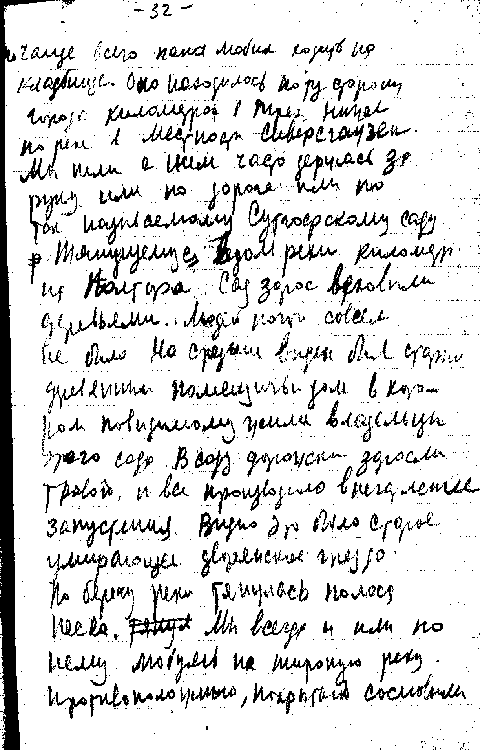 - 32 -
Чаще всего папа любил ходить на
кладбище. Оно находилось по ту сторону
города километрах в трех, ниже
по реке в местности
Мы шли с ним часто держась за
руку или по дороге или по
так называемому саду
тянущемуся вдоль реки километр
на полтора. Сад зарос вековыми
деревьями. Людей почти совсем
не было. На средине виден был старый
деревянный помещичий дом в кото-
ром повидимому жили владельцы
этого сада. В саду дорожки заросли
травой, и все производило впечатление
запустения. Видно это было старое
умирающее дворянское гнездо.
По берегу реки тянулась полоса
песка. Мы всегда и шли по
нему любуясь на широкую реку.
Противоположный, покрытый сосновыми